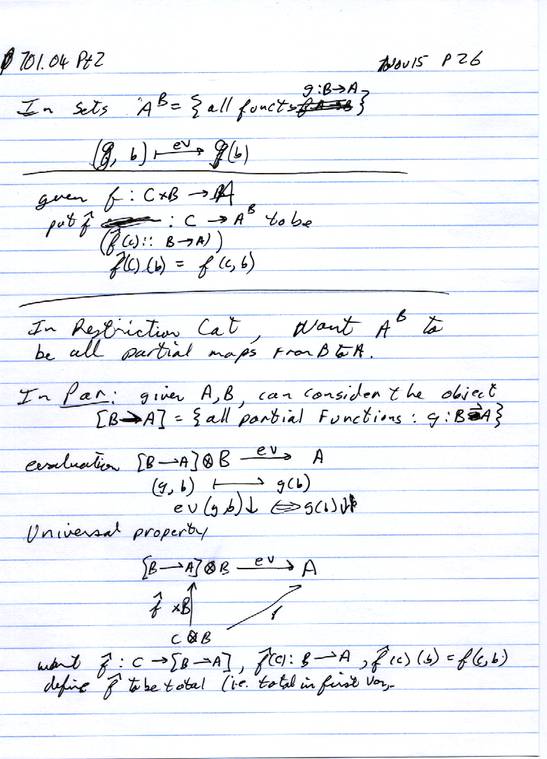 701.04 Pt 2 Nov 15 P 26
In Sets A^B = { all functs g:B→A }
(g, b) ⟼ev g(b)
given f : C×B → A
put f̂ : C → A^B to be
(f̂(c) :: B→A)
f̂(c)(b) = f(c,b)
In Restriction Cat, Want A^B to
be all partial maps from B to A.
In Par: given A,B, can consider the object
[B→A] = { all partial Functions : g:B→A }
evaluation [B→A]⊗B —ev→ A
(g, b) ⟼ g(b)
ev(g,b)↓ ⟺ g(b)↓
Universal property
[B→A]⊗B —ev→ A
f̂ ×B f
C⊗B
want f̂ : C→[B→A], f̂(c): B→A, f̂(c)(b) = f(c,b)
define f̂ to be total (i.e. total in first var,